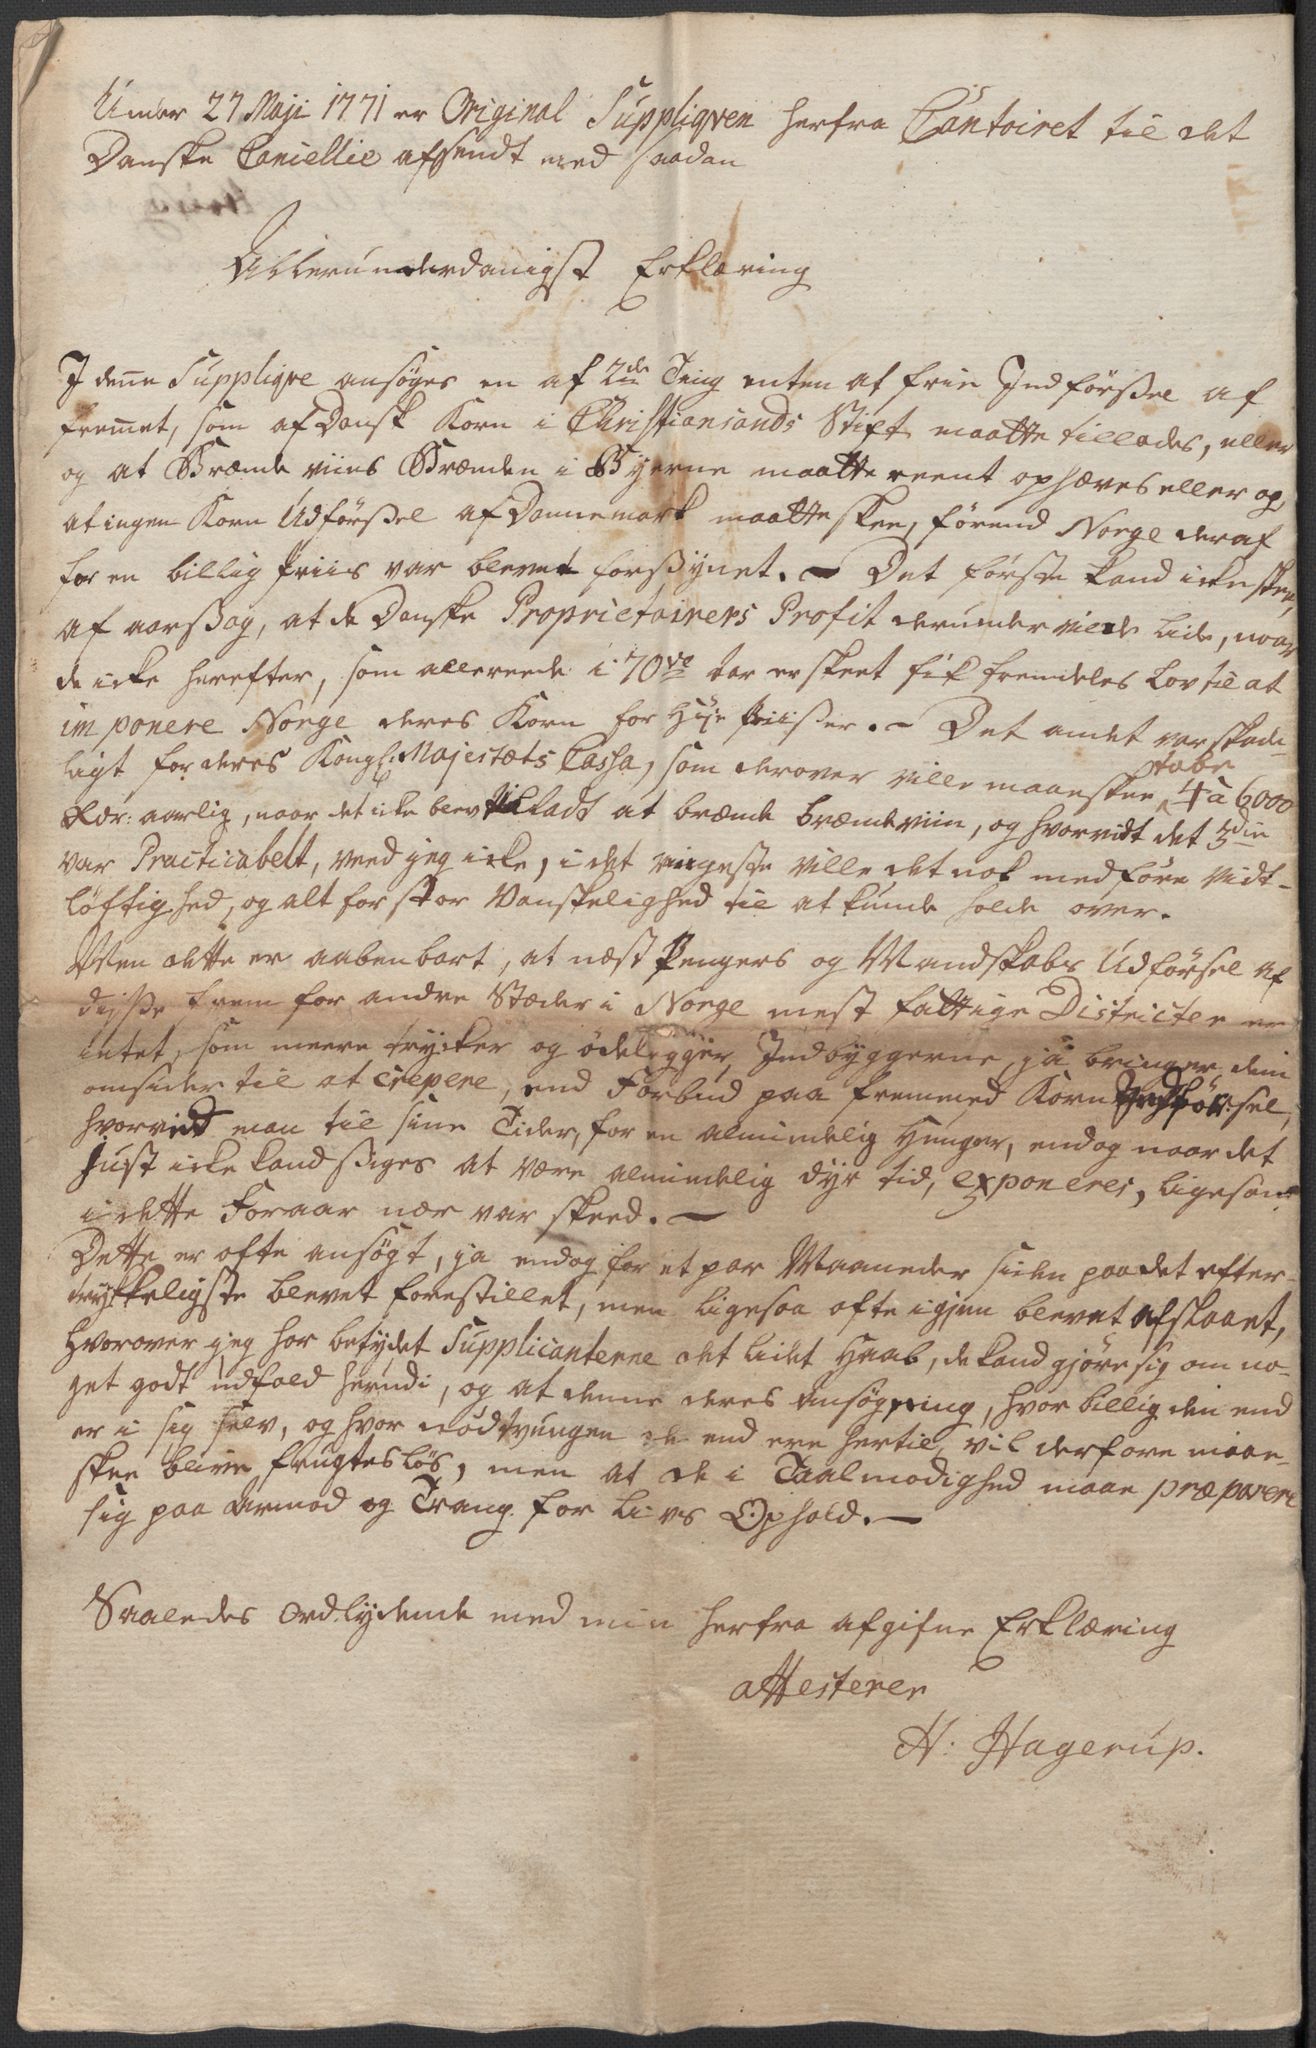 Under 27 Maji 1771 er Original Suppliqven herfra Contoiret til det
Danske Cancellie afsendt med saadan
Allerunderdanigst Erklæring
I deñe Supplique ansøges en af 2de Ting enten at frie Indførsel af
fremet, som af Dansk Korn i Christiansands Stift maatte tillades, eller
og at Brænde viins Brænden i Byerne maatte reent ophæves eller og
at ingen Korn Udførsel af Dannemark maatte skee, førend Norge deraf
for en billig Priis var blevet forsÿnet. – Det første kand icke skee,
af aarsag, at de Danske Proprietairers Profit derunder vilde lide, naar
de icke herefter, som allereede i 70ve Aar er skeet fik fremdeles Lov til at
imponere Norge deres Korn for høje Priiser. – Det andet var skade-
ligt for deres Kongl: Majestæts Cassa, som derover ville maaskee tabe 4 à 6000
Rdr: aarlig, naar det icke blev tilladt at brænde brændeviin, og hvorvidt det 3die
var Practicabelt, veed jeg icke, i det ringeste ville det nok medføre vidt-
løftighed, og alt for stor Vanskelighed til at kunde holde over.
Men dette er aabenbart, at næst Pengers og Mandskabs Udførsel af
disse frem for andre Stæder i Norge mest fattige Districter er
intet, som meere trycker og ødelegger Indbyggerne, ja bringer dem
omsider til at crepere, end Forbud paa fremmed Korn Indførsel,
hvorved man til sine Tider, for en almindelig Hunger, endog naar det
just icke kand siges at være almindelig dyr tid, exponeres, ligesom
i dette Foraar nær var skeed. –
Dette er ofte ansøgt, ja endog for et par Maaneder siden paa det efter-
trykkeligste blevet forestillet, men ligesaa ofte igjen blevet afslaaet,
hvorover jeg har betydet Supplicanterne det lidet Haab, de kand gjøre sig om no-
get godt udfald herudi, og at denne deres Ansøgning, hvor billig den end
er i sig selv, og hvor nødtvungen de end ere hertil, vil derfore maae-
skee blive frugtesløs, men at de i Taalmodighed maae præparere
sig paa Armod og Trang for Livs Ophold. –
Saaledes Ordlydende med min herfra afgifne Erklæring
attesterer
H: Hagerup.